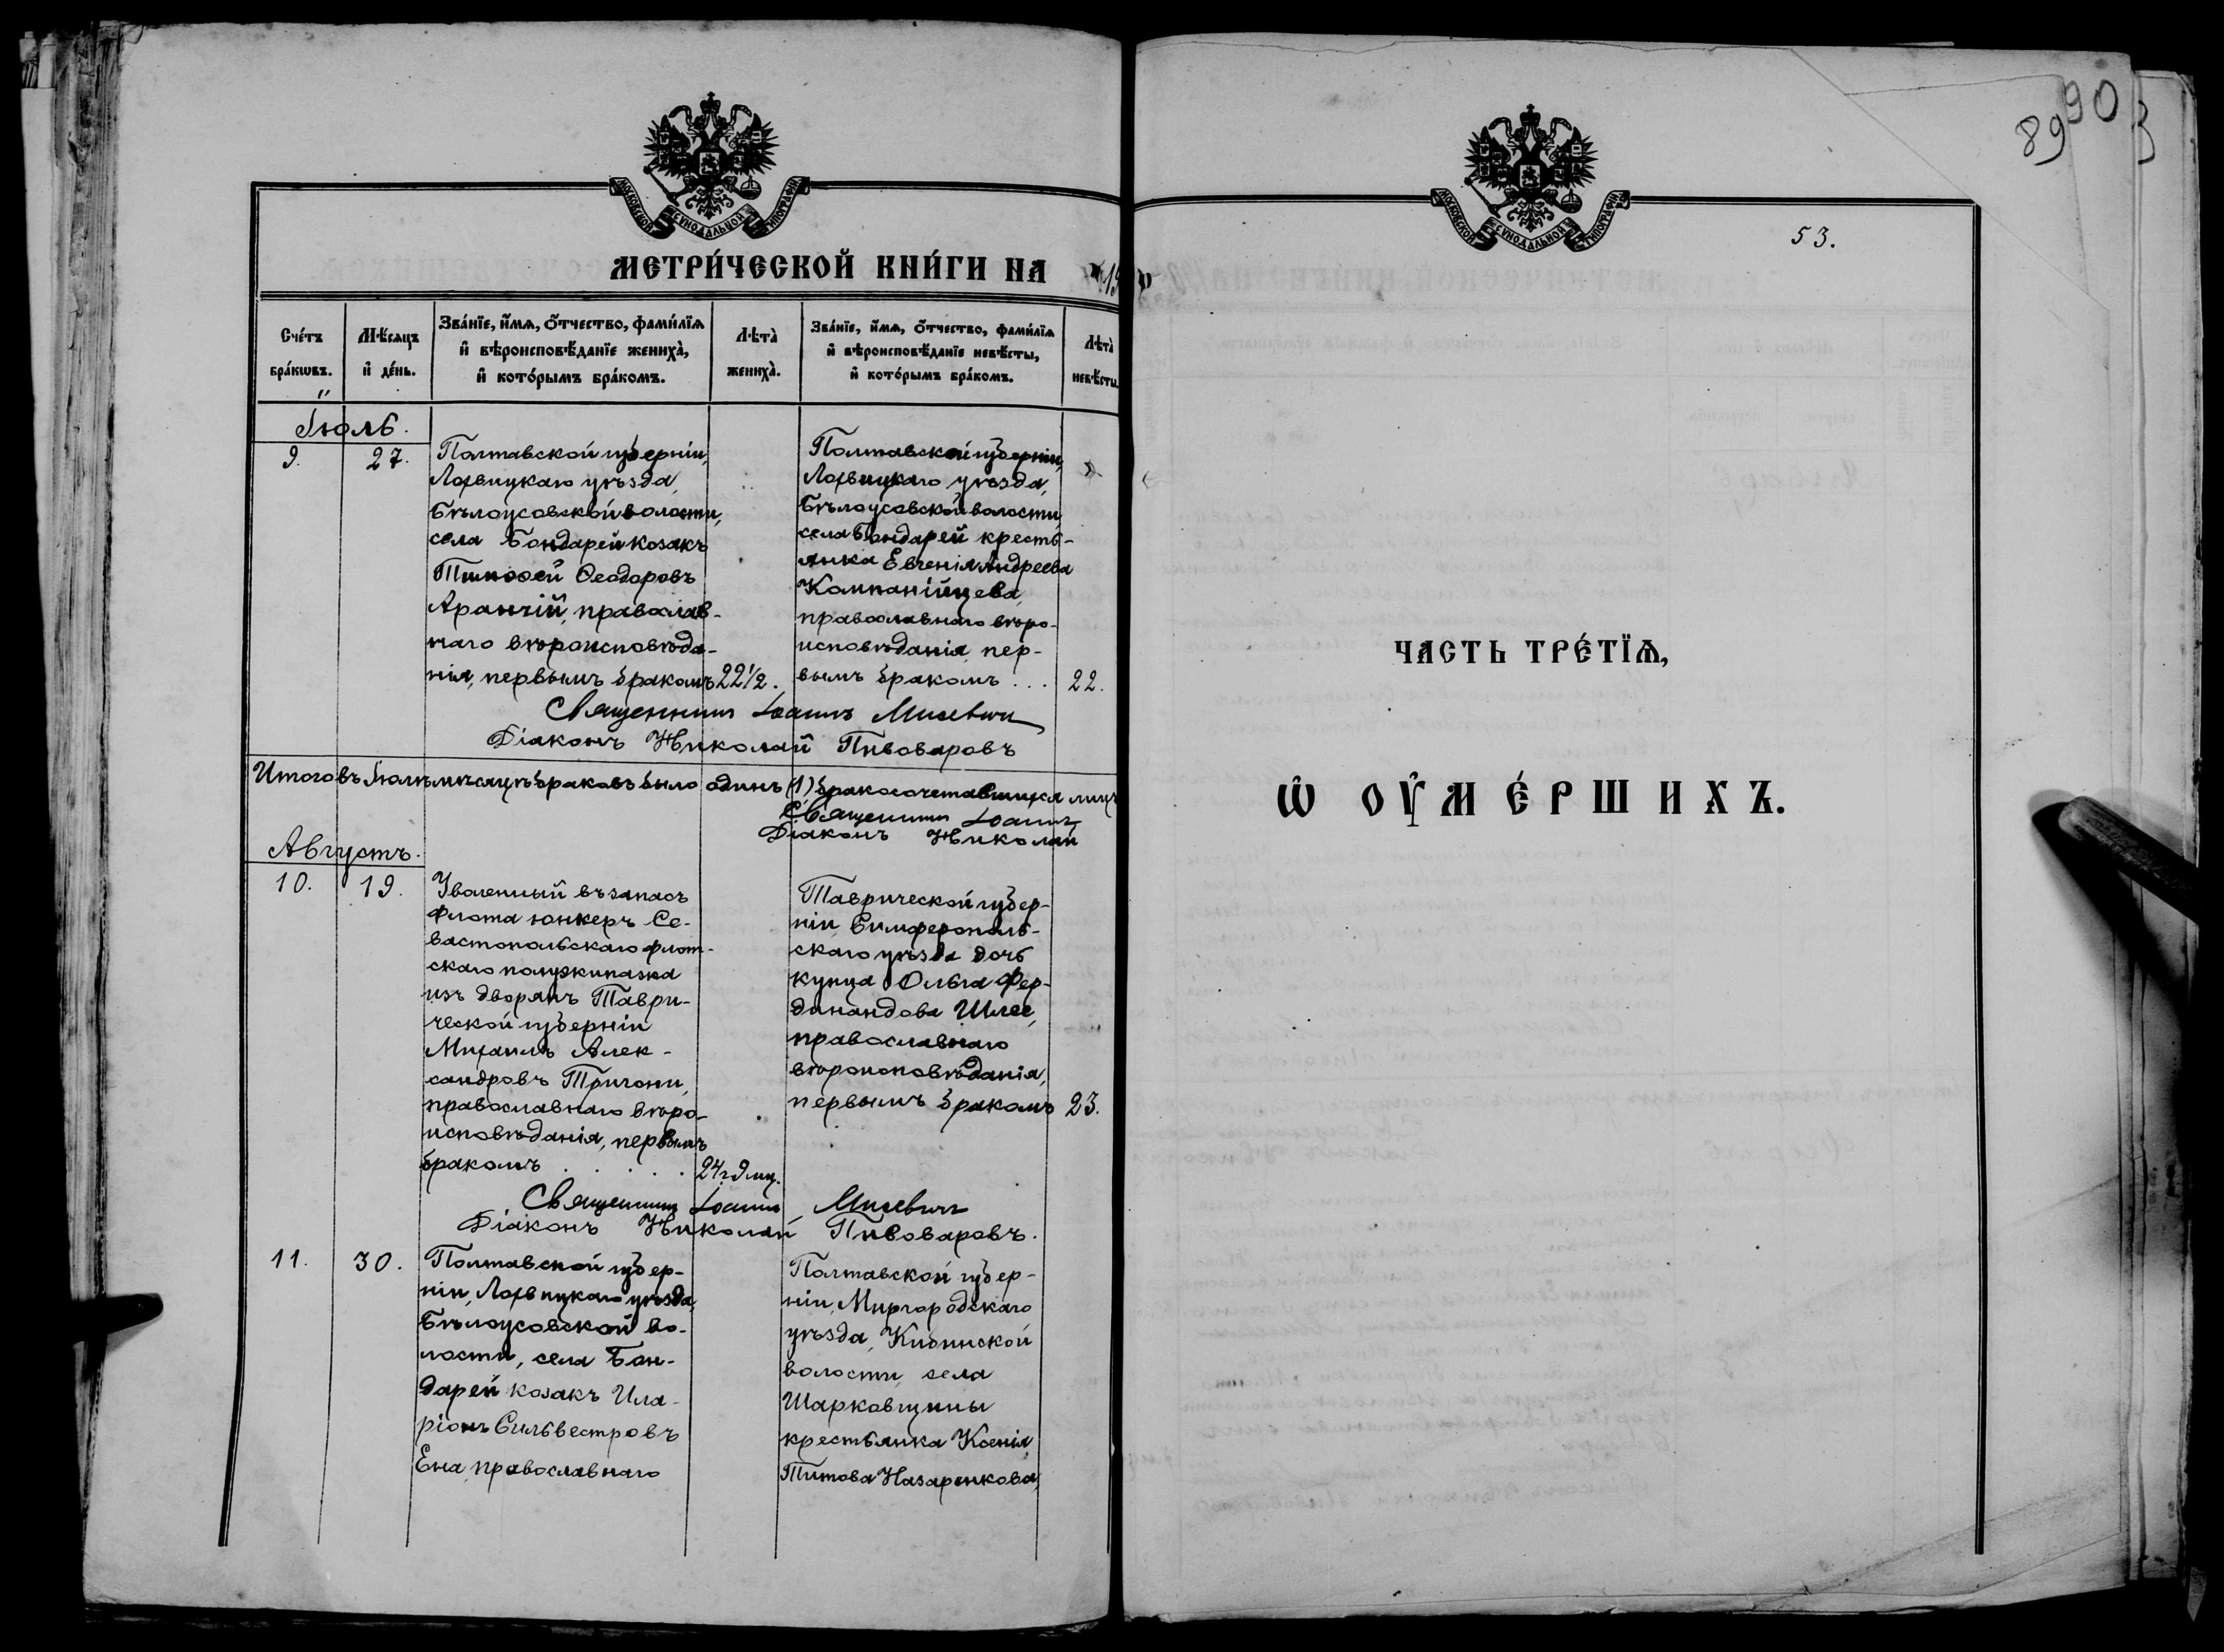 МОСКОВСКОЙ СѴНОДАЛЬНОЙ ТИПОГРАФІИ
МЕТРИ́ЧЕСКОЙ КНИ́ГИ НА 19
Сче́тъ бра́кωвъ.
Мѣ́сяцъ и҆ де́нь.
Зва́нїе, и҆́мѧ, ѻ҆́тчество, фами́лїѧ
и҆ вѣроисповѣ́данїе жениха̀,
и҆ кото́рымъ бра́комъ.
Лѣта̀ жениха̀.
Зва́нїе, и҆́мѧ, ѻ҆́тчество, фами́лїѧ
и҆ вѣроисповѣ́данїе невѣ́сты,
и҆ кото́рымъ бра́комъ.
Лѣта̀ невѣ́сты.
Іюль.
9. 27.
Полтавской губерніи,
Лохвицкаго уѣзда,
Бѣлоусовской волости,
села Бондарей козакъ
Тимоѳей Ѳеодоровъ
Аранчій, православ-
наго вѣроисповѣда-
нія, первымъ бракомъ 22½.
Полтавской губерніи,
Лохвицкаго уѣзда,
Бѣлоусовской волости,
села Бондарей кресть-
янка Евгенія Андреева
Компанійцева,
православнаго вѣро-
исповѣданія, пер-
вымъ бракомъ ... 22.
Священникъ Іоаннъ Мисевичъ
Діаконъ Николай Пивоваровъ
Итого въ Іюлѣ мѣсяцѣ браковъ было одинъ (1) бракосочетавшихся лицъ
Священникъ Іоаннъ
Діаконъ Николай
Августъ.
10. 19.
Уволенный въ запасъ
флота юнкеръ Се-
вастопольскаго флот-
скаго полуэкипажа
изъ дворянъ Таври-
ческой губерніи
Михаилъ Алек-
сандровъ Тригони,
православнаго вѣро-
исповѣданія, первымъ
бракомъ . . . . . 24 г. 9 мц.
Таврической губер-
ніи Симферополь-
скаго уѣзда дочь
купца Ольга Фер-
динандова Шлее,
православнаго
вѣроисповѣданія,
первымъ бракомъ 23.
Священникъ Іоаннъ Мисевичъ
Діаконъ Николай Пивоваровъ.
11. 30.
Полтавской губер-
ніи, Лохвицкаго уѣзда,
Бѣлоусовской во-
лости, села Бон-
дарей козакъ Ила-
ріонъ Сильвестровъ
Ена, православнаго
Полтавской губер-
ніи, Миргородскаго
уѣзда, Кибинской
волости, села
Шарковщины
крестьянка Ксенія
Титова Назаренкова,
89 90
МОСКОВСКОЙ СѴНОДАЛЬНОЙ ТИПОГРАФІИ
53.
ЧАСТЬ ТРЕ́ТЇѦ,
Ѡ҆ ОУ҆МЕ́РШИХЪ.